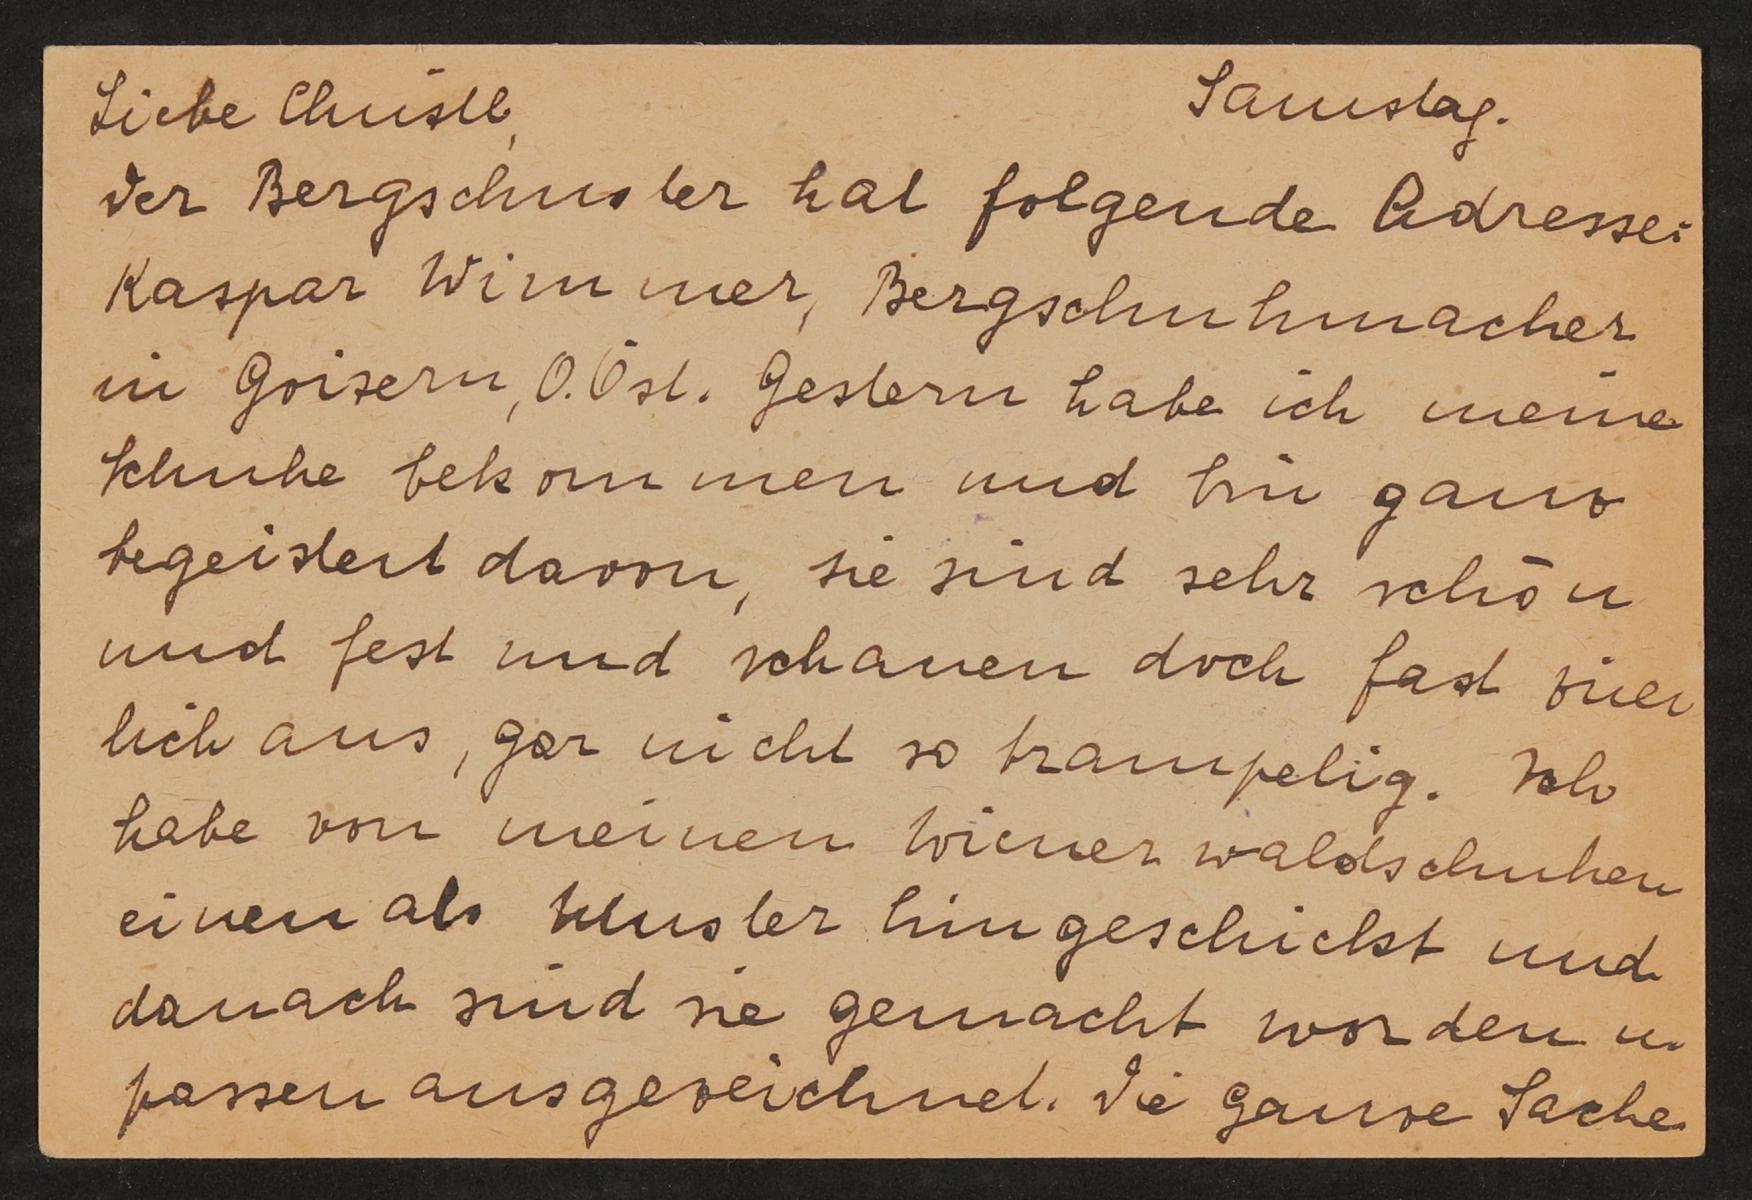 Samstag.
Liebe Christl,
der Bergschuster hat folgende Adresse:
Kaspar Wimmer, Bergschuhmacher
in Goisern, O.Öst. Gestern habe ich meine
Schuhe bekommen und bin ganz
begeistert davon, sie sind sehr schön
und fest und schauen doch fast zier
lich aus, gar nicht so trampelig. Ich
habe von meinen Wienerwaldschuhen
einen als Muster hingeschickt und
danach sind sie gemacht worden u.
passen ausgezeichnet. Die ganze Sache